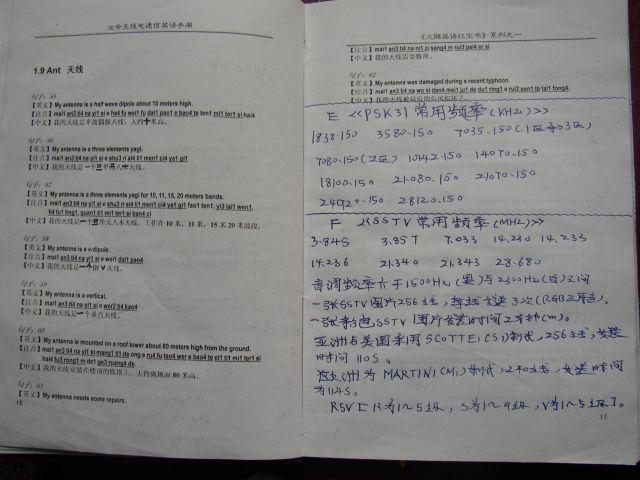 业余无线电通信英语手册
1.9 Ant 天线
句子：55
【英文】My antenna is a half wave dipole about 10 meters high.
【注音】mai1 an3 ti4 na yi1 si e ha4 fu wei1 fu dai1 pao1 a bao4 te ten1 mi1 ter1 si hai4
【中文】我的天线是半波偶极天线，大约十米高。
句子：56
【英文】My antenna is a three elements yagi.
【注音】mai1 an3 ti4 na yi1 si e shu3 ri ai4 li1 men1 ci4 ya1 gi1
【中文】我的天线是一个三单元八木天线。
句子：57
【英文】My antenna is a three elements yagi for 10, 11, 15, 20 meters bands.
【中文】我的天线是三单元八木天线，工作在 10 米，11 米，15 米 20 米波段。
句子：58
【英文】My antenna is a v-dipole.
【注音】mai1 an3 ti4 na yi1 si e wei1 dai1 pao4
【中文】我的天线是一个倒 V 天线。
句子：59
【英文】My antenna is a vertical.
【注音】mai1 an3 ti4 na yi1 si e wer2 ti4 kao4
【中文】我的天线是一个垂直天线。
句子：60
【英文】My antenna is mounted on a roof tower about 80 meters high from the ground.
【中文】我的天线安装在楼顶的铁塔上，大约离地面 80 米高。
句子：61
【英文】My antenna needs some repairs.
16
《火腿英语红宝书》系列之一
【注音】mai1 an3 ti4 na ni1 si sang4 m rui3 pai4 er si
【中文】我的天线需要修理。
句子：62
【英文】My antenna was damaged during a recent typhoon.
【注音】mai1 an3 ti4 na wo si dan4 mei1 ju1 de du1 ring1 e rui2 sen1 te tai1 fong4.
E 《PSK31 常用频率(KHZ)》
1838.150 3580.150 7035.150(1区和3区)
7080.150(2区) 10142.150 14070.150
18100.150 21080.150 21070.150
24920.150 28120.150
F. 《SSTV 常用频率(MHZ)》
3.845 3.857 7.033 14.230 14.233
14.236 21.340 21.343 28.680
音调频率介于1500HZ(黑)与2300HZ(白)之间
一张SSTV图片256线, 每线发送3次(RGB三原色),
一张彩色SSTV图片发送时间 (m).
亚洲与美国采用SCOTTE1(S1)制式, 256线, 发送
时间110S.
欧洲为MARTIN1(M1)制式, 240线, 发送时间
为114S.
RSV [R为1~5级, S为1~9级, V为1~5级].
17